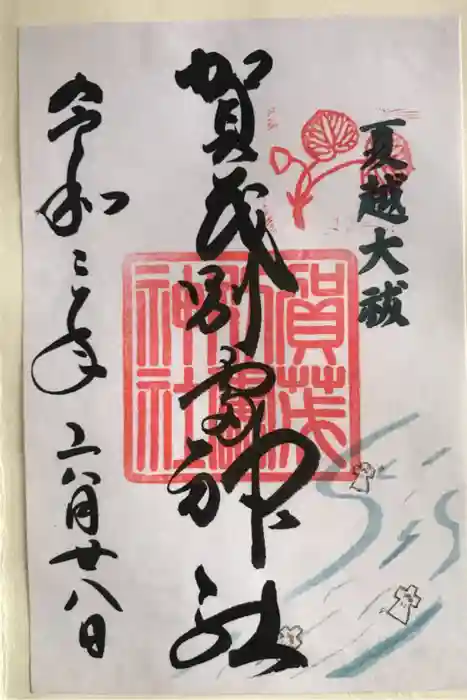 夏越大祓
賀茂別雷神社
令和二年 六月廿八日
賀茂
別雷
神社